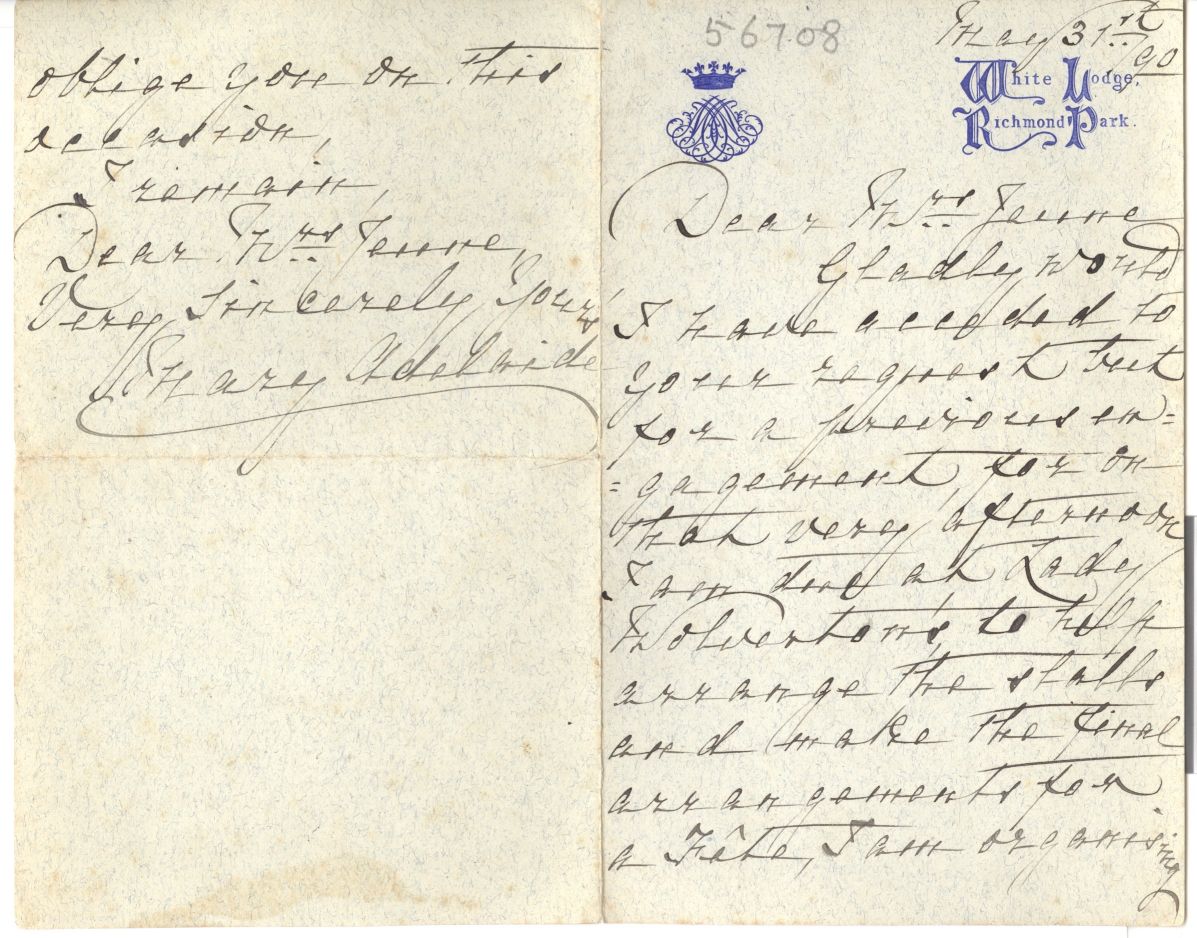 56708
May 31st /90
White Lodge,
Richmond Park.
Dear Mrs Jeune
Gladly would
I have acceded to
your request but
for a previous en=
=gagement, for on
that very afternoon
I am due at Lady
Wolverton's, to help
arrange the stalls
and make the final
arrangements for
a Fête, I am organising
oblige you on this
occasion,
I remain,
Dear Mrs Jeune,
Very sincerely Yours
Mary Adelaide